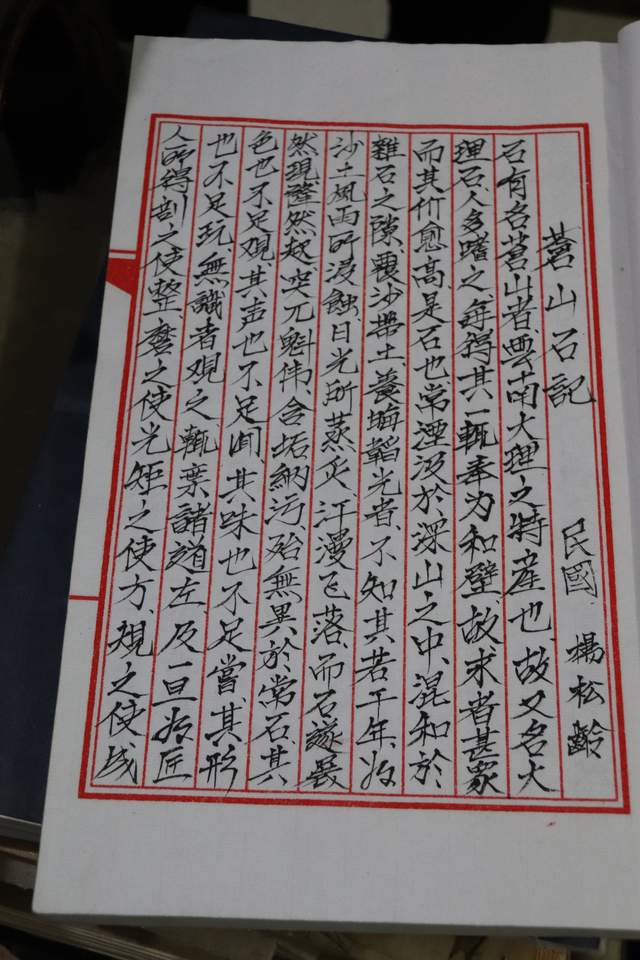 蒼山石記 民國 楊松齡
石有名蒼山者、雲南大理之特産也、故又名大
理石、人多嗜之、每得其一、輒奉为和壁、故求者甚眾
而其价愈高、是石也、常湮沒於深山之中、混和於
雜石之隙、覆沙帶土、養晦韜光者、不知其若干年、始
沙土風雨所浸蝕、日光所蒸灭、汗漫飞落、而石遂晨
然現、隆然起、突兀魁伟、含垢納污、殆無異於常石、其
色也不足觀、其声也不足闻、其味也不足嘗、其形
也不足玩、無識者观之、輒棄諸道左、及一旦为匠
人所得、剖之使整、磨之使光、矩之使方、規之使